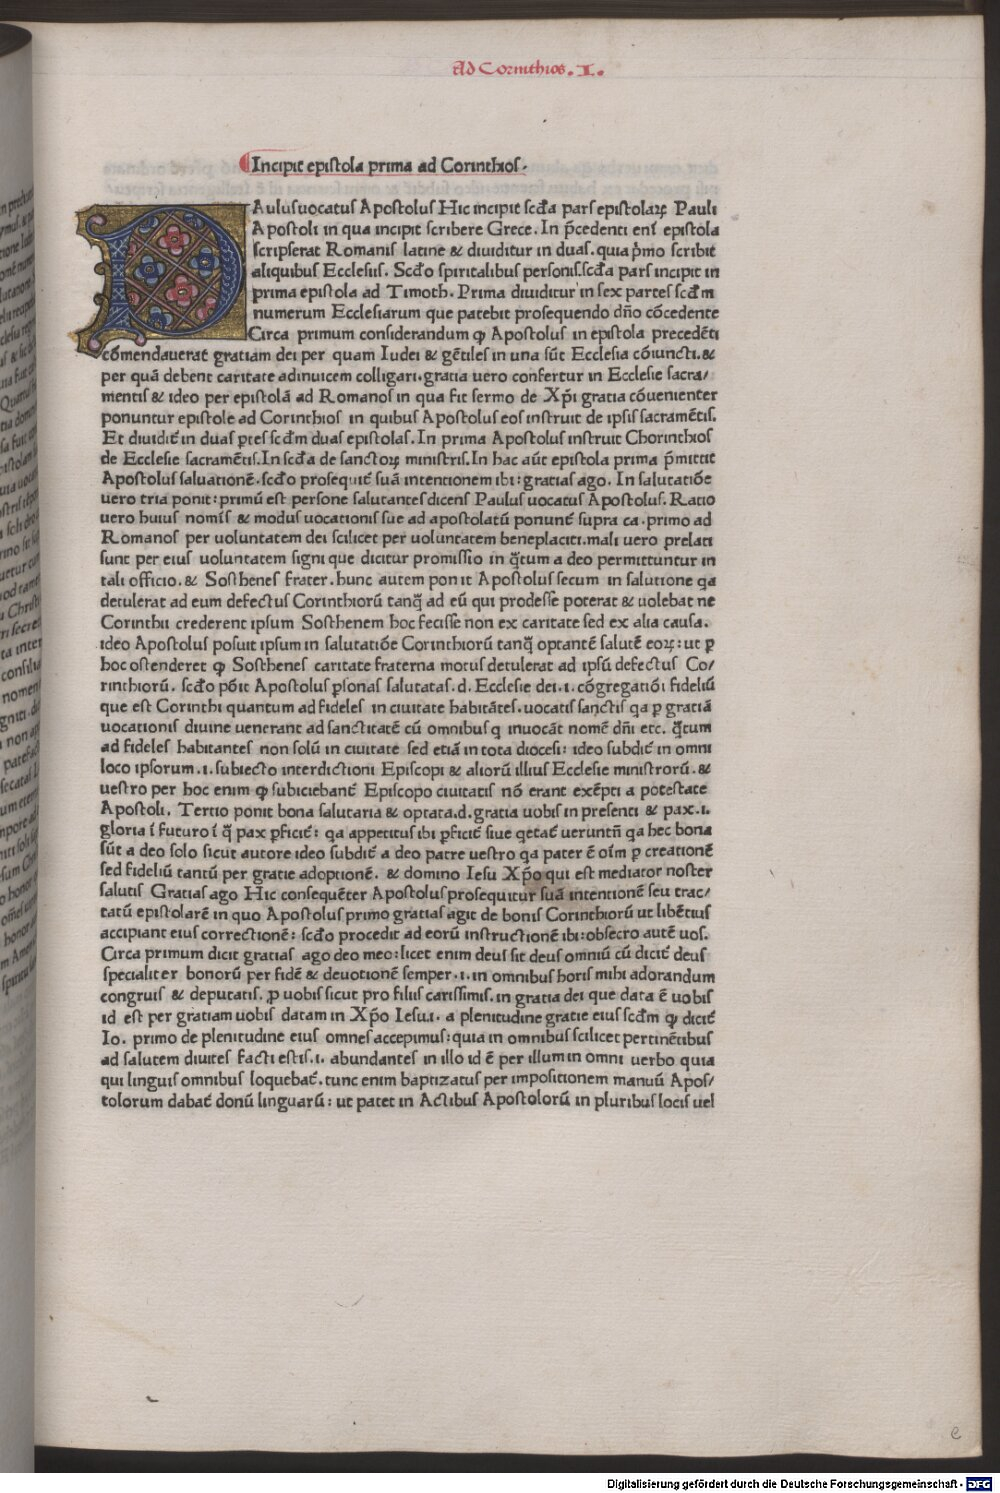 Ad Corinthios. I.
Incipit epistola prima ad Corinthios.
PAulus uocatus Apostolus Hic incipit scđa pars epistolaꝝ Pauli
Apostoli in qua incipit scribere Grece. In p̄cedenti eni epistola
scripserat Romanis latine & diuiditur in duas. quia p̄mo scribit
aliquibus Ecclesiis. Scđo spiritalibus personis. scđa pars incipit in
prima epistola ad Timoth. Prima diuiditur in sex partes scđm
numerum Ecclesiarum que patebit prosequendo dño cōcedente
Circa primum considerandum ꝙ Apostolus in epistola precedēti
cōmendauerat gratiam dei per quam Iudei & gētiles in una sūt Ecclesia cōiuncti. &
per quā debent caritate adinuicem colligari. gratia uero confertur in Ecclesie sacra/
mentis & ideo per epistolā ad Romanos in qua fit sermo de Xp̄i gratia cōuenienter
ponuntur epistole ad Corinthios in quibus Apostolus eos instruit de ipsis sacramētis.
Et diuidit̄ in duas p̄tes scđm duas epistolas. In prima Apostolus instruit Chorinthios
de Ecclesie sacramētis. In scđa de sanctoꝝ ministris. In hac aūt epistola prima p̄mittit
Apostolus saluationē. scđo prosequit̄ suā intentionem ibi: gratias ago. In salutatiōe
uero tria ponit: primū est persone salutantes dicens Paulus uocatus Apostolus. Ratio
uero huius nomis & modus uocationis sue ad apostolatū ponunt̄ supra ca. primo ad
Romanos per uoluntatem dei scilicet per uoluntatem beneplaciti. mali uero prelati
sunt per eius uoluntatem signi que dicitur promissio in q̄tum a deo permittuntur in
tali officio. & Sosthenes frater. hunc autem ponit Apostolus secum in salutione qa
detulerat ad eum defectus Corinthiorū tanq̄ ad eū qui prodesse poterat & uolebat ne
Corinthii crederent ipsum Sosthenem hoc fecisse non ex caritate sed ex alia causa.
ideo Apostolus posuit ipsum in salutatiōe Corinthiorū tanq̄ optantē salutē eoꝝ: ut ꝑ
hoc ostenderet ꝙ Sosthenes caritate fraterna motus detulerat ad ipsū defectus Co/
rinthiorū. scđo pōit Apostolus ꝑsonas salutatas. d. Ecclesie dei. i. cōgregatiōi fideliū
que est Corinthi quantum ad fideles in ciuitate habitātes. uocatis sanctis qa ꝑ gratiā
uocationis diuine uenerant ad sanctitatē cū omnibus q inuocāt nomē dñi etc. q̄tum
ad fideles habitantes non solū in ciuitate sed etiā in tota diocesi: ideo subdit̄ in omni
loco ipsorum. i. subiecto interdictioni Episcopi & aliorū illius Ecclesie ministrorū. &
uestro per hoc enim ꝙ subiciebant̄ Episcopo ciuitatis nō erant exēpti a potestate
Apostoli. Tertio ponit bona salutaria & optata. d. gratia uobis in presenti & pax. i.
gloria ī futuro ī q̄ pax ꝑficit̄: qa appetitus ibi ꝑficit̄ siue qetat̄ ueruntñ qa hec bona
sūt a deo solo sicut autore ideo subdit̄ a deo patre uestro qa pater ē oīm ꝑ creationē
sed fideliū tantū per gratie adoptionē. & domino Iesu Xp̄o qui est mediator noster
salutis Gratias ago Hic consequēter Apostolus prosequitur suā intentionē seu trac/
tatū epistolarē in quo Apostolus primo gratias agit de bonis Corinthiorū ut libētius
accipiant eius correctionē: scđo procedit ad eorū instructionē ibi: obsecro autē uos.
Circa primum dicit gratias ago deo meo: licet enim deus sit deus omniū cū dicit̄ deus
specialiter bonorū per fidē & deuotionē semper. i. in omnibus horis mihi adorandum
congruis & deputatis. ꝓ uobis sicut pro filiis carissimis. in gratia dei que data ē uobis
id est per gratiam uobis datam in Xp̄o Iesu. i. a plenitudine gratie eius scđm ꝙ dicit̄
Io. primo de plenitudine eius omnes accepimus: quia in omnibus scilicet pertinētibus
ad salutem diuites facti estis. i. abundantes in illo id ē per illum in omni uerbo quia
qui linguis omnibus loquebat̄. tunc enim baptizatus per impositionem manuū Apos/
tolorum dabat̄ donū linguarū: ut patet in Actibus Apostolorū in pluribus locis uel
e
Digitalisierung gefördert durch die Deutsche Forschungsgemeinschaft - DFG